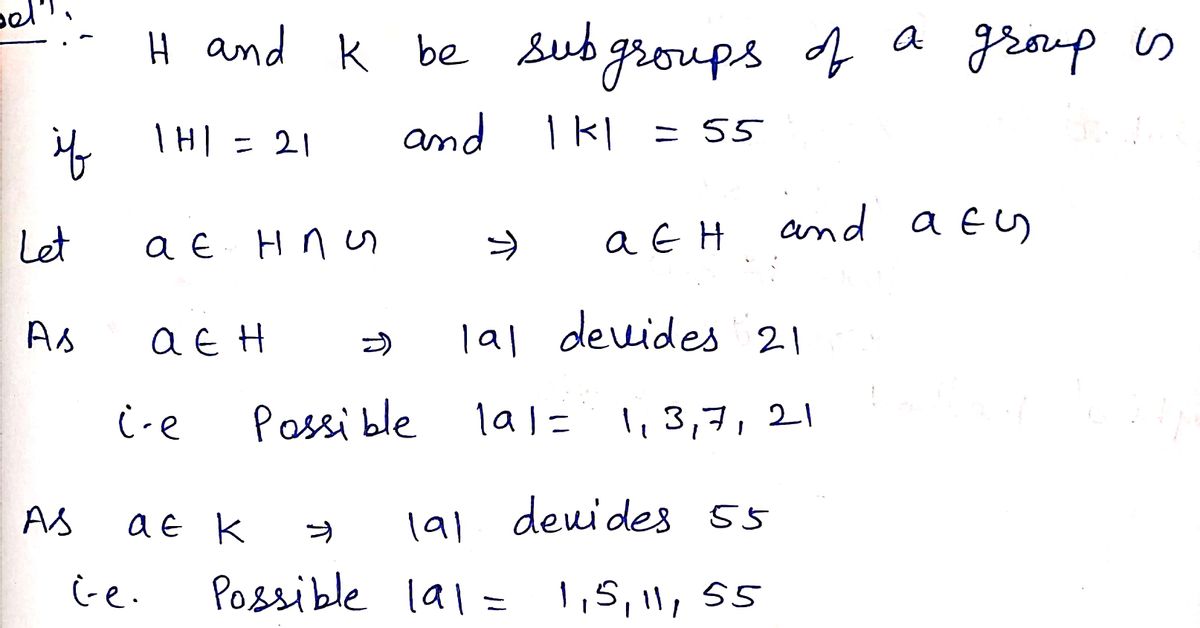 Solⁿ:-
H and K be subgroups of a group G
if |H| = 21 and |K| = 55
Let a ∈ H ∩ G ⇒ a ∈ H and a ∈ G
As a ∈ H ⇒ |a| devides 21
i.e Possible |a| = 1, 3, 7, 21
As a ∈ K ⇒ |a| devides 55
i.e. Possible |a| = 1, 5, 11, 55